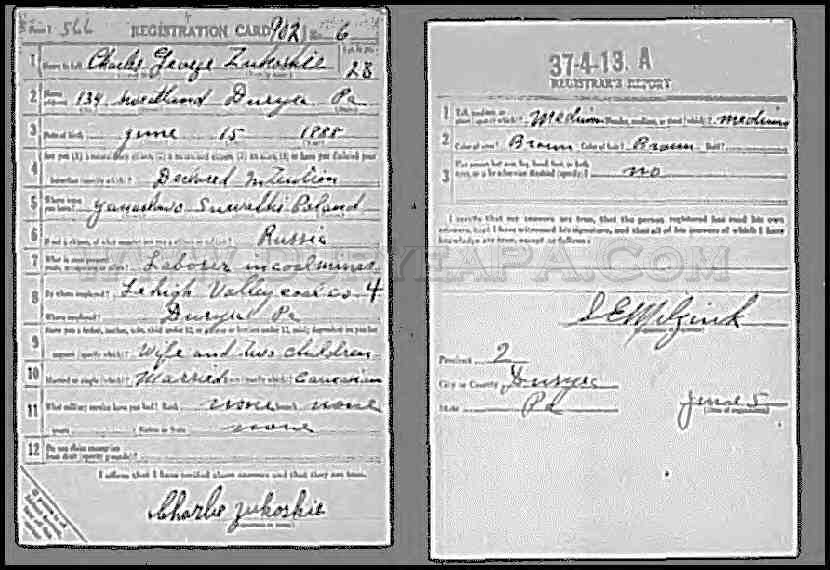 Form 1 566 REGISTRATION CARD 902 No. 6
1 Name in full Charles George Zukoskie Age in yrs. 28
2 Home address 134 Duryea Pa
3 Date of birth June 15 1888
4 Are you (1) a natural-born citizen, (2) a naturalized citizen, (3) an alien, (4) or have you declared your
intention (specify which)? Declared Intention
5 Where were you born? Suwalki Poland
6 If not a citizen, of what country are you a citizen or subject? Russia
7 What is your present trade, occupation, or office? Laborer in coal mines
8 By whom employed? Lehigh Valley coal co 4
Where employed? Duryea Pa
9 Have you a father, mother, wife, child under 12, or a sister or brother under 12, solely dependent on you for
support (specify which)? Wife and two children
10 Married or single (which)? Married Race (specify which)? Caucasian
11 What military service have you had? Rank none branch none
years Nation or State none
12 Do you claim exemption from draft (specify grounds)?
I affirm that I have verified above answers and that they are true.
Charlie Zukoskie
37-4-13. A
REGISTRAR'S REPORT
1 Tall, medium, or short (specify which)? Medium Slender, medium, or stout (which)? medium
2 Color of eyes? Brown Color of hair? Brown Bald?
3 Has person lost arm, leg, hand, foot, or both eyes, or is he otherwise disabled (specify)? no
I certify that my answers are true, that the person registered has read his own
answers, that I have witnessed his signature, and that all of his answers of which I have
knowledge are true, except as follows:
WWW.DURYEAPA.COM
Precinct 2
City or County Duryea
State Pa June 5
(Date of registration)